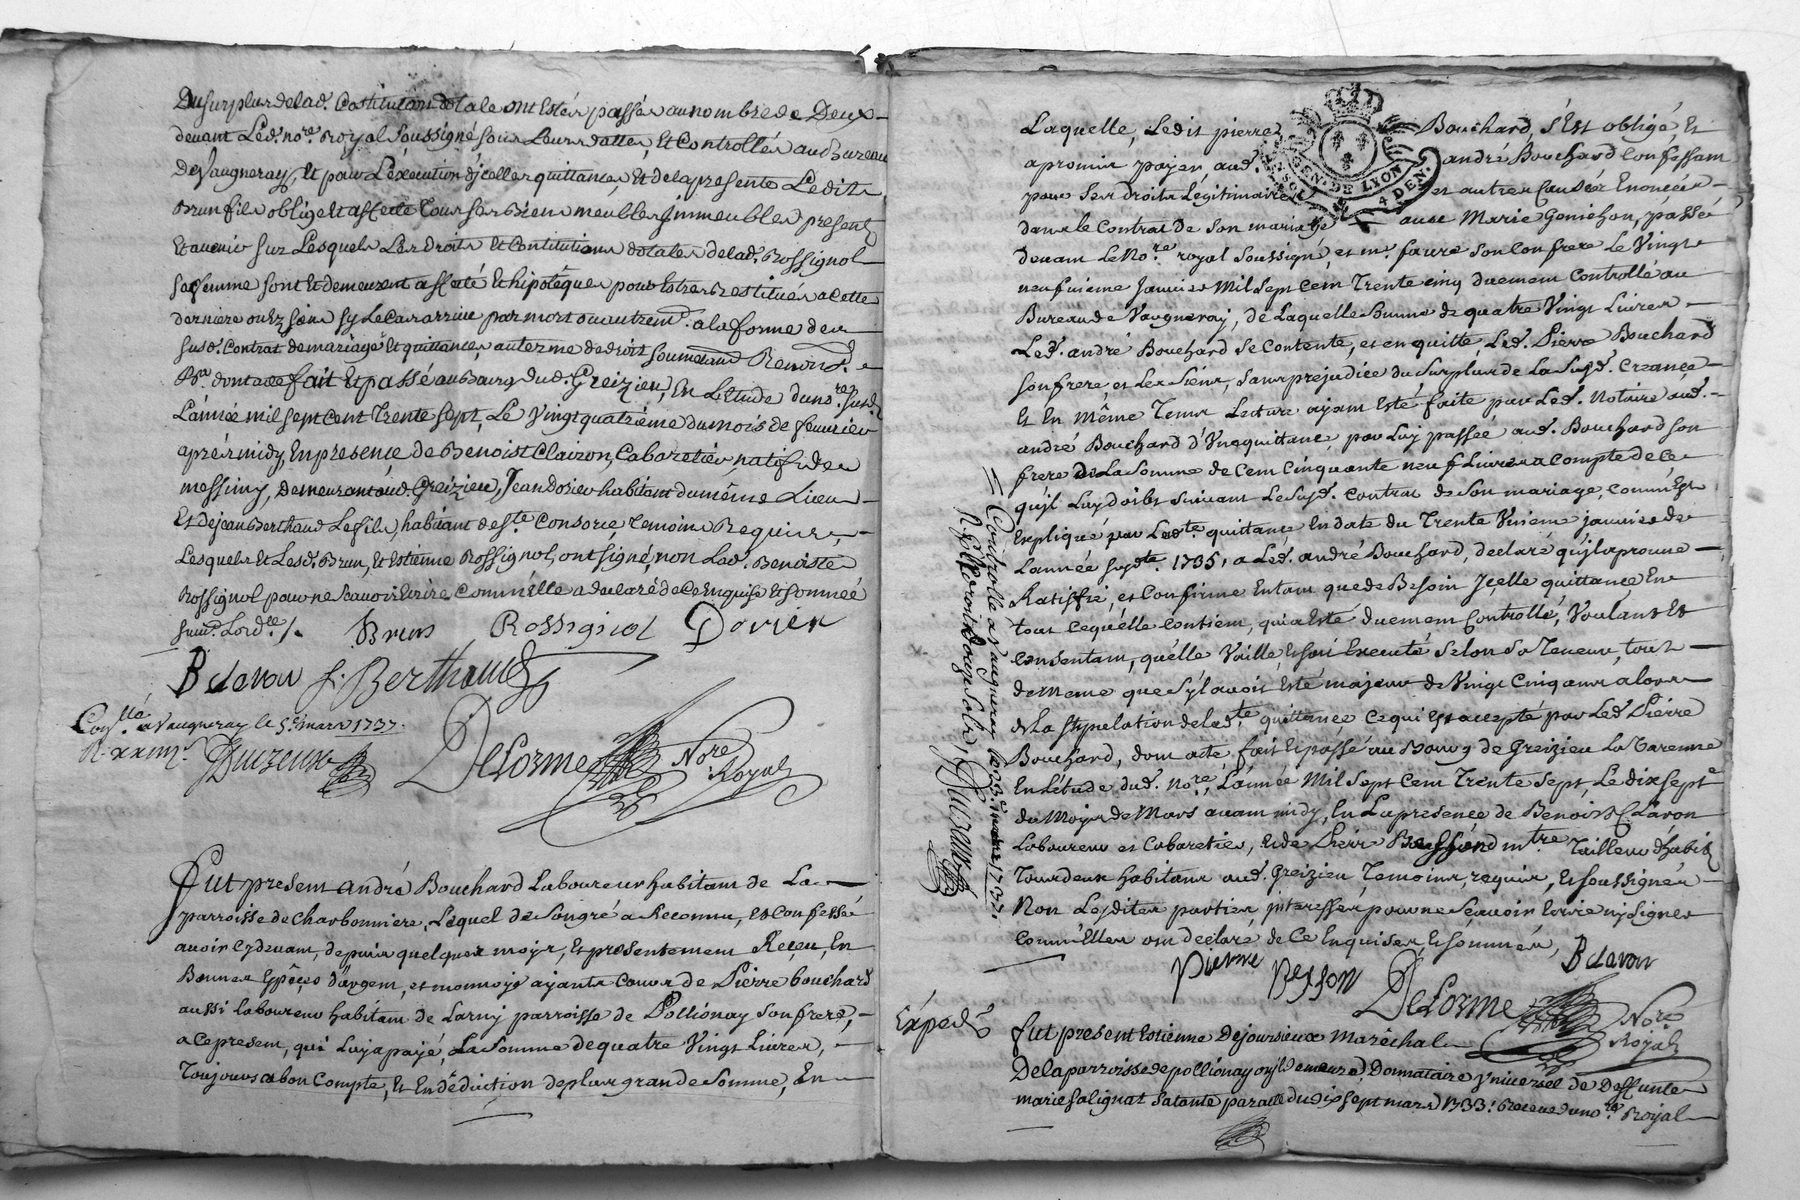 Du surplus de lad. Constitution dotale ont Estés passés au nombre de Deux
devant Led. no.re Royal soussigné sous Leurs dattes, Et Controllés au Bureau
de Vaugneray, Et pour L'execution d'jcelles quittances, Et de la presente Ledit
Brun fils oblige Et affecte tous ses Biens meubles jmmeubles presents
Et avenir sur Lesquels Les droits Et Constitutions dotales de lad. Rossignol
sa femme sont Et demeurent affecté Et hipotêqués pour Estre Restitués a Cette
derniere ou Ez siens sy Le Cas arrive par mort ou autrem.t a la forme des
susd. Contrat de mariage Et quittances, au terme de droit soumettant Renonc.t
&.a dont acte fait Et passé au Bourg dud. Greizieu, En L'Etude du no.re susd.
L'année mil sept Cent Trente sept, Le Vingt quatriême du mois de fevrier
aprés midy, En presence de Benoist Clavron, Cabaratier natif de
messimy, demeurant aud. Greizieu, Jean dorier habitant du même Lieu
Et de jean Berthaud Le fils, habitant de S.te Consorce, temoins Requis,
Lesquels Et Lesd. Brun, Et Estienne Rossignol, ont signé, non Lad. Benoiste
Rossignol pour ne scavoir Ecrire Comm'elle a declaré de Ce Enquise Et sommée
suiv.t L'ord.ce /.
Brun Rossignol Dorier
B clavron J. Berthaud
Con.llé a Vaugneray le 5.e mars 1737.
Delorme No.re Royal
Fut present André Bouchard Laboureur habitant de La
parroisse de Charbonniere, Lequel de son gré a Reconnu, et Confessé
avoir Cy devant, depuis quelques mois, Et presentement Reçeu, En
Bonnes Espêces d'argent, et monnoye ayants Cours de Pierre bouchard
aussi laboureur habitant de Larny parroisse de Pollionay son frere,
a Ce present, qui Luy a payé, La somme de quatre Vingt Livres,
Toujours a bon Compte, Et En dêduction de plus grande somme, En
Laquelle, Ledit pierre Bouchard, s'Est obligé, Et
a promis payer, aud. andré Bouchard Confessant
pour ses droits Legitimaires et autres Causes Enoncées
dans le Contrat de son mariage avec Marie Genichon, passé
devant Le No.re royal soussigné, et m.e faure son Confrere Le Vingt
neufvieme Janvier Mil sept Cent Trente cinq duement Controllé au
Bureau de Vaugneray, de Laquelle somme de quatre Vingt Livres
Led. andré Bouchard se Contente, et en quitte Led. Pierre Bouchard
son frere, et Les siens, sans prejudice du surplus de La susd. Creance
Et En Même Tems Lecture ayant Esté faite par Led. Notaire aud.
andré Bouchard d'Une quittance par Luy passée aud. Bouchard son
frere de La somme de Cent Cinquante neuf Livres a Compte de Ce
qu'jl Luy doibt suivant Le susd. Contrat de son mariage, Comm'Est
Expliqué par Lad.te quittance En date du Trente Unieme janvier de
L'année susd.te 1735, a Led. andré Bouchard, declaré qu'jl aprouve
Ratiffie, et Confirme En tant que de Besoin Jcelle quittance En
tout Ce qu'elle Contient, qui a Esté duement Controllé, Voulant Et
Consentant, qu'elle Vaille, Et soit Executé selon sa Teneur, tout
de meme que s'jl avoit Esté majeur de Vingt Cinq ans alors
de La stipulation de lad.te quittance, Ce qui Est accepté par Led. Pierre
Bouchard, dont acte, fait Et passé au Bourg de Greizieu La Varenne
En L'étude dud. No.re, L'année Mil sept Cent Trente sept, Le dix sept.e
du Mois de Mars avant midy, En La presence de Benoist Clavron
Laboureur et Cabaretier, Et de Pierre Besson m.tre Tailleur d'habits
Tous deux habitans aud. Greizieu Temoins, requis, Et soussignés
Non Lesdites parties, jnteressées, pour ne Sçavoir Ecrire ny signer
Comm'Elles ont declaré de Ce Enquises Et sommées,
B clavron
pierre besson
Delorme No.re Royal
Controllé a Vaugneray le 23.e mars 1737.
GEN. DE LYON
4 DEN.
Expedié
fut present Estienne Dejoursieux Maréchal
De la parroisse de pollionay ou jl demeure, Donnataire Vniversel de Deffunte
marie salignat sa tante par acte du dix sept mars 1733. Receue du no.re Royal